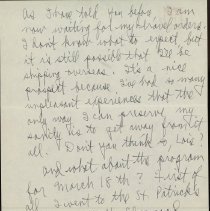 As I have told you before I am
now waiting for my travel orders.
I don't know what to expect but
it is still possible that I'll be
shipping overseas. It's a nice
prospect because I've had so many
unpleasant experiences that the
only way I can preserve my
sanity is to get away from it
all. Don't you think so Lois?
And what about the program
for March 18th? First of
all I went to the St. Patrick's